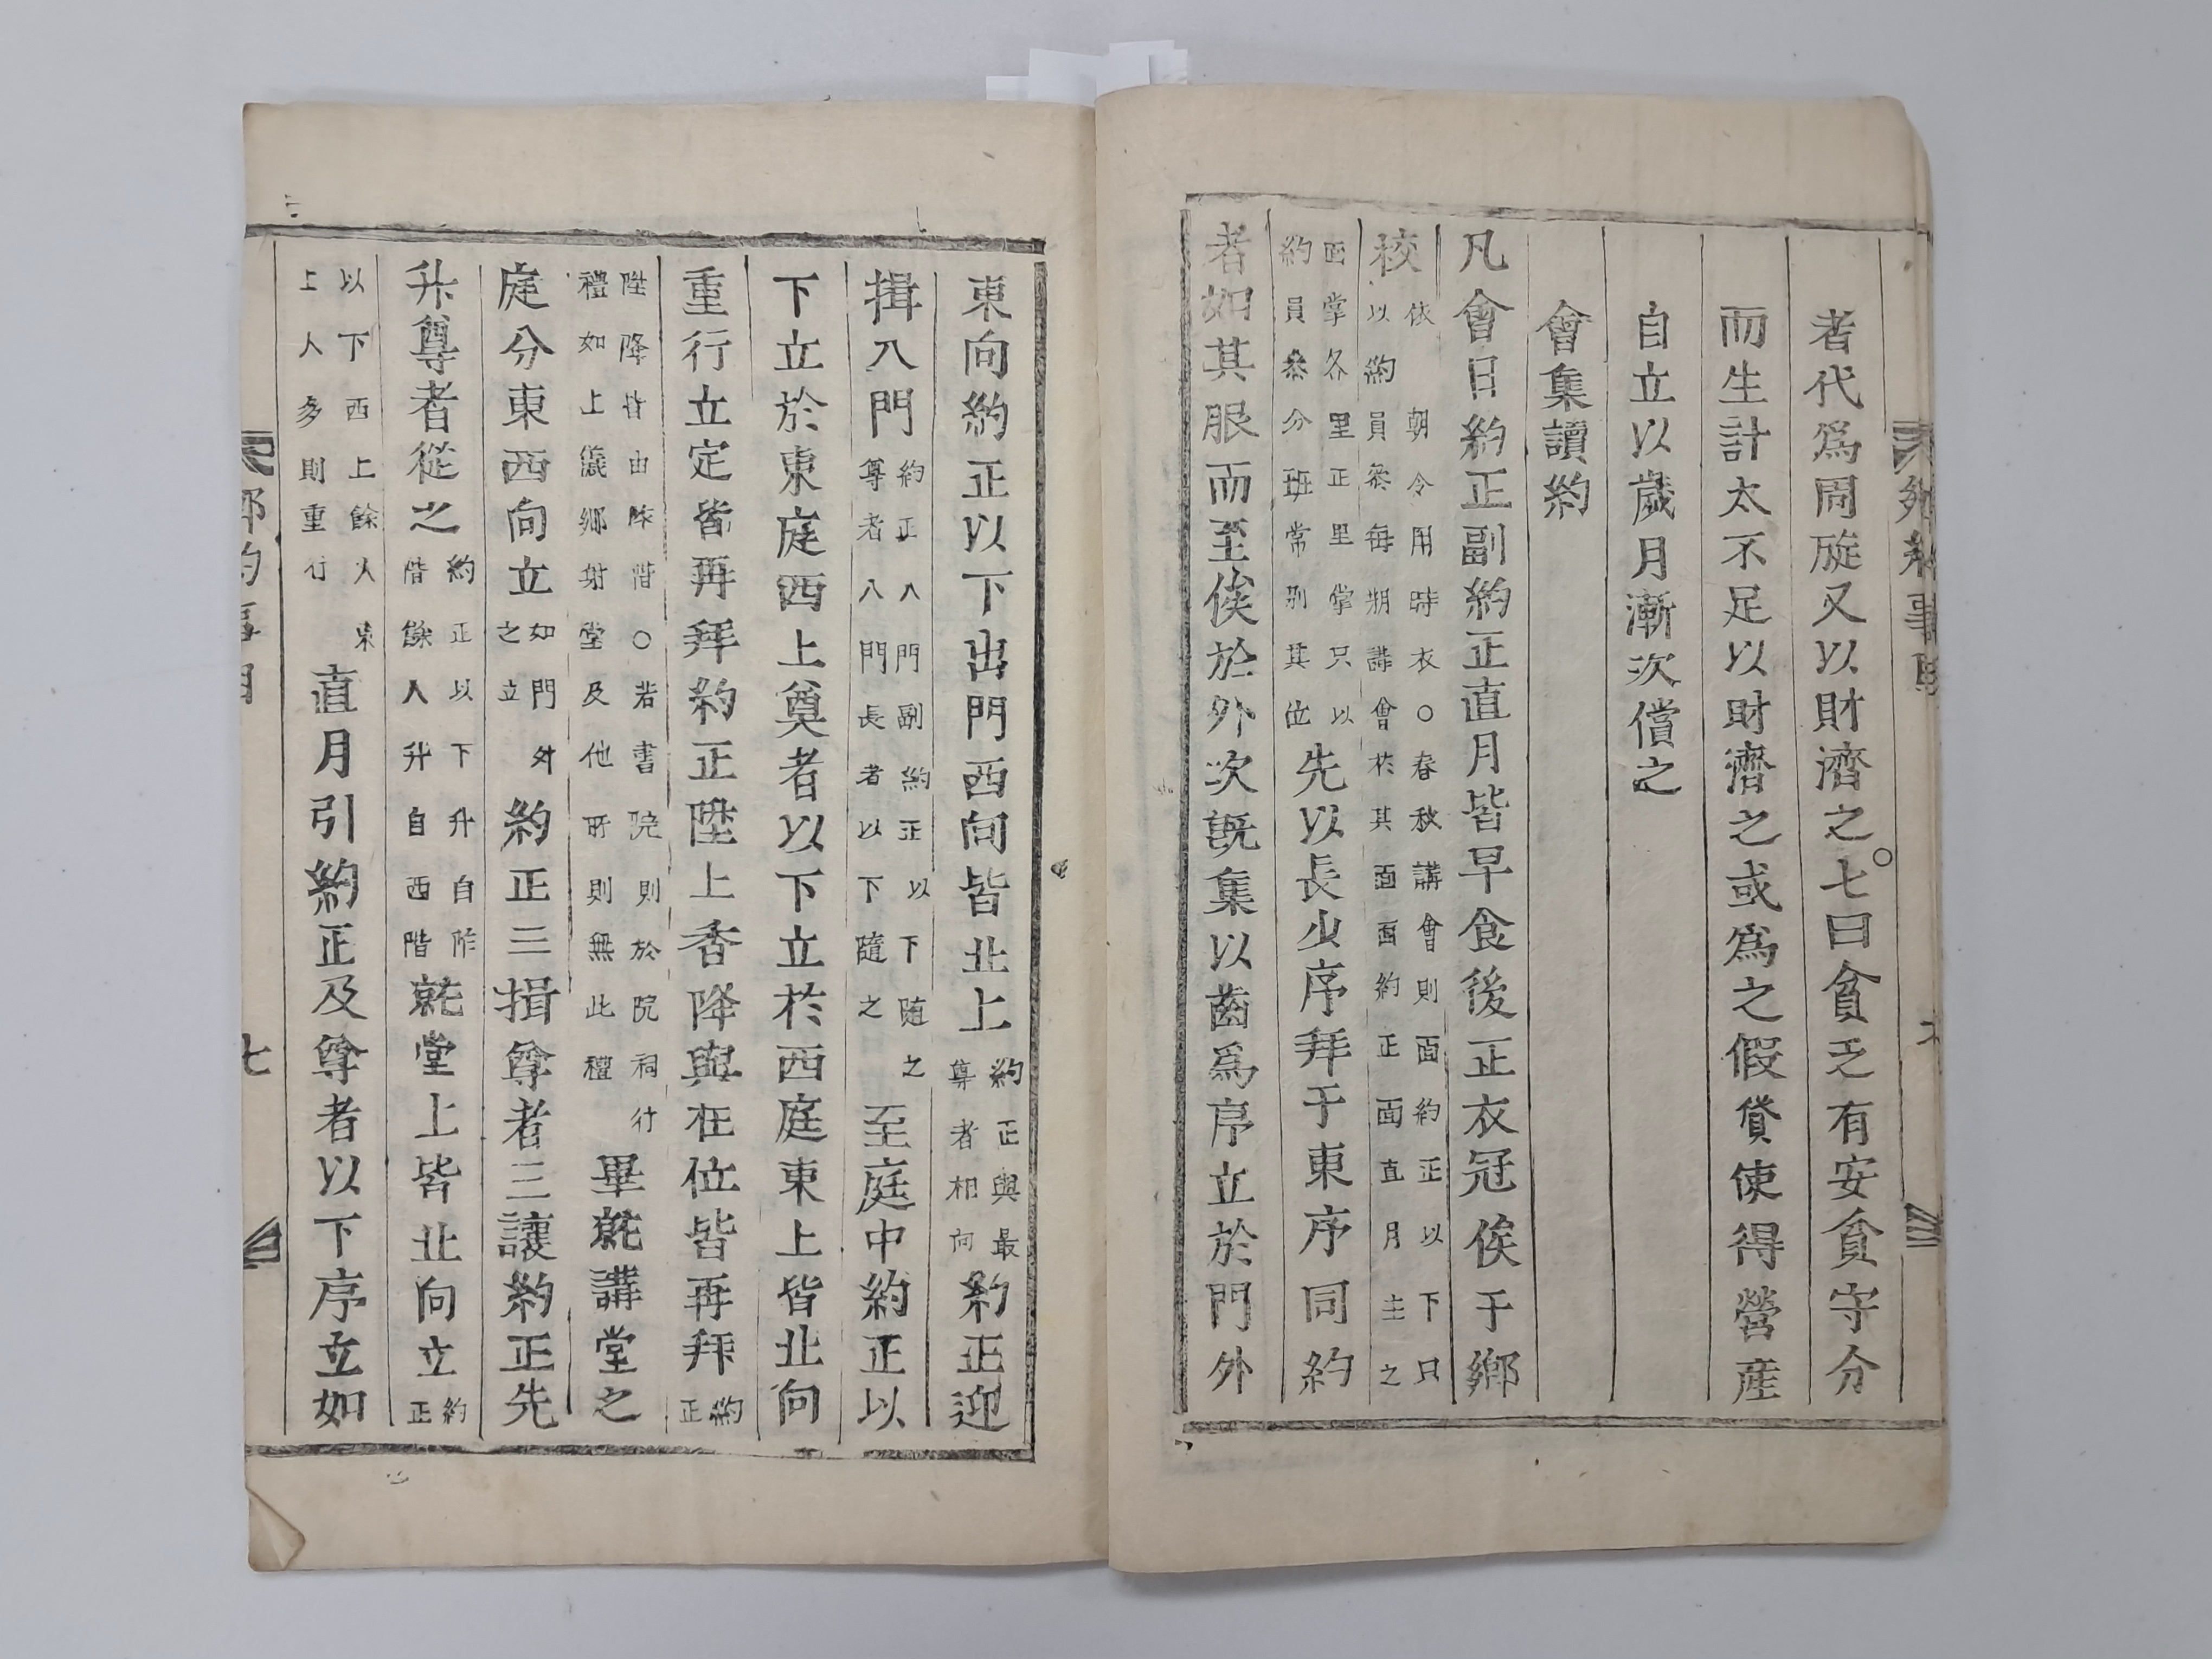 者代爲周旋又以財濟之○七曰貧乏有安貧守分
而生計太不足以財濟之或爲之假貸使得營產
自立以歲月漸次償之
會集讀約
凡會日約正副約正直月皆早食後正衣冠俟于鄉
校依朝令用時衣○春秋講會則面約正以下只
以約員叅每朔講會於其面面約正面直月主之
面掌各里正里掌只以
約員叅分班常別其位先以長少序拜于東序同約
者如其服而至俟於外次旣集以齒爲序立於門外
東向約正以下出門西向皆北上約正與最
尊者相向約正迎
揖入門約正入門副約正以下随之
尊者入門長者以下隨之至庭中約正以
下立於東庭西上尊者以下立於西庭東上皆北向
重行立定皆再拜約正陞上香降與在位皆再拜約
正
陞降皆由阼階○若書院則於院祠行
禮如上儀鄉射堂及他所則無此禮畢就講堂之
庭分東西向立如門外
之立約正三揖尊者三讓約正先
升尊者從之約正以下升自阼
階餘人升自西階就堂上皆北向立約
正
以下西上餘人東
上人多則重行直月引約正及尊者以下序立如
七